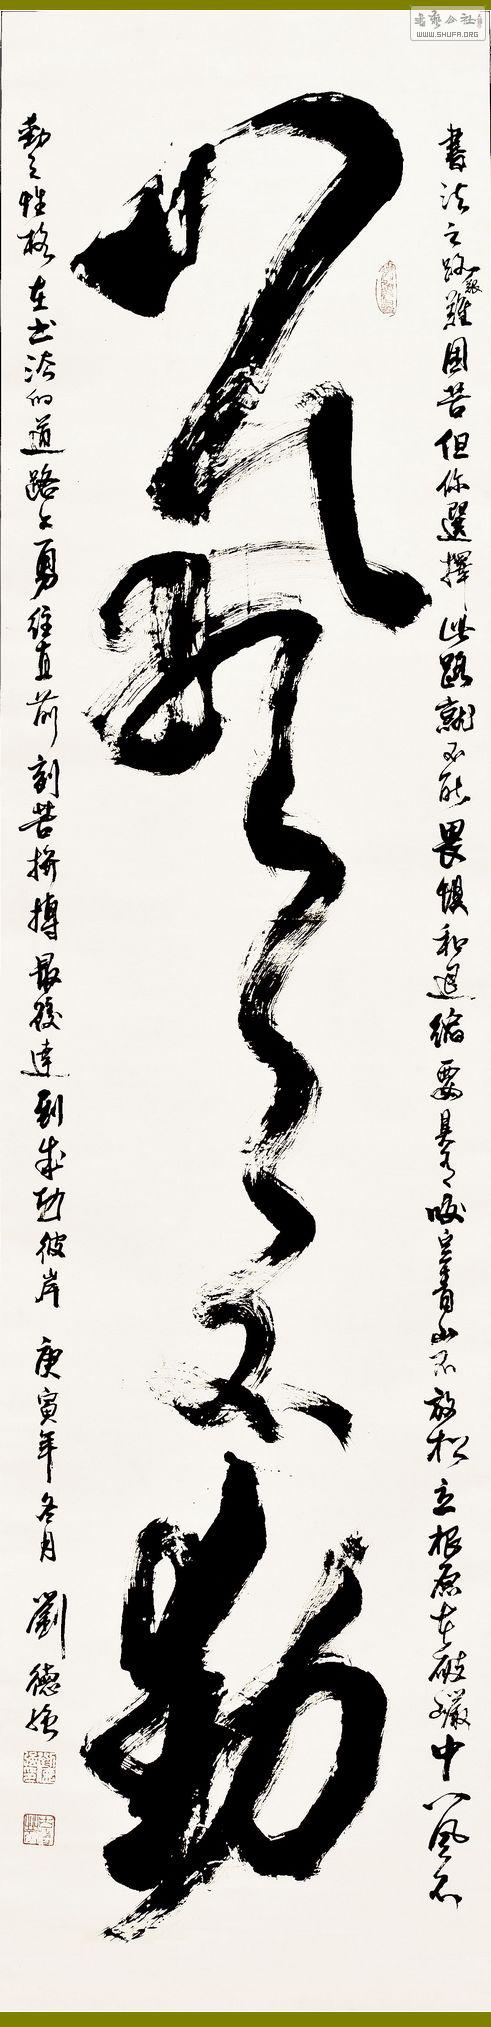 书艺公社
WWW.SHUFA.ORG
書法之路艱難困苦但你選擇此路就不能畏懼和退縮要具有咬定青山不放松立根原在破巖中八風不
八風不動
動之性格在书法的道路上勇往直前刻苦拼搏最後達到成功彼岸 庚寅年冬月 劉德強